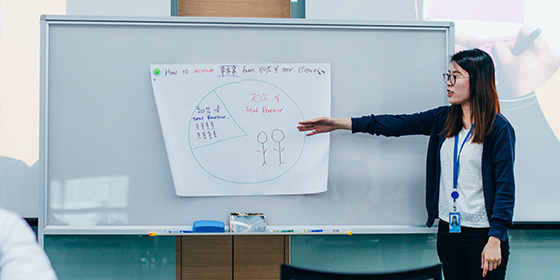 How to increase $$$ from 80% of our Clients
20% of
Total Revenue
70% of
Total Revenue